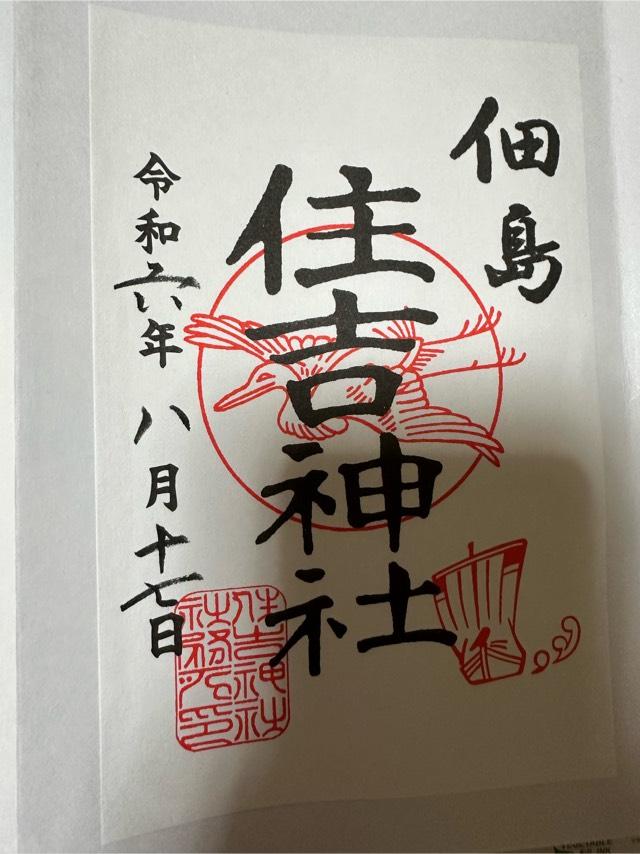 佃島
住吉神社
令和六年八月十七日
住吉神社
社務所印
VEGETABLE